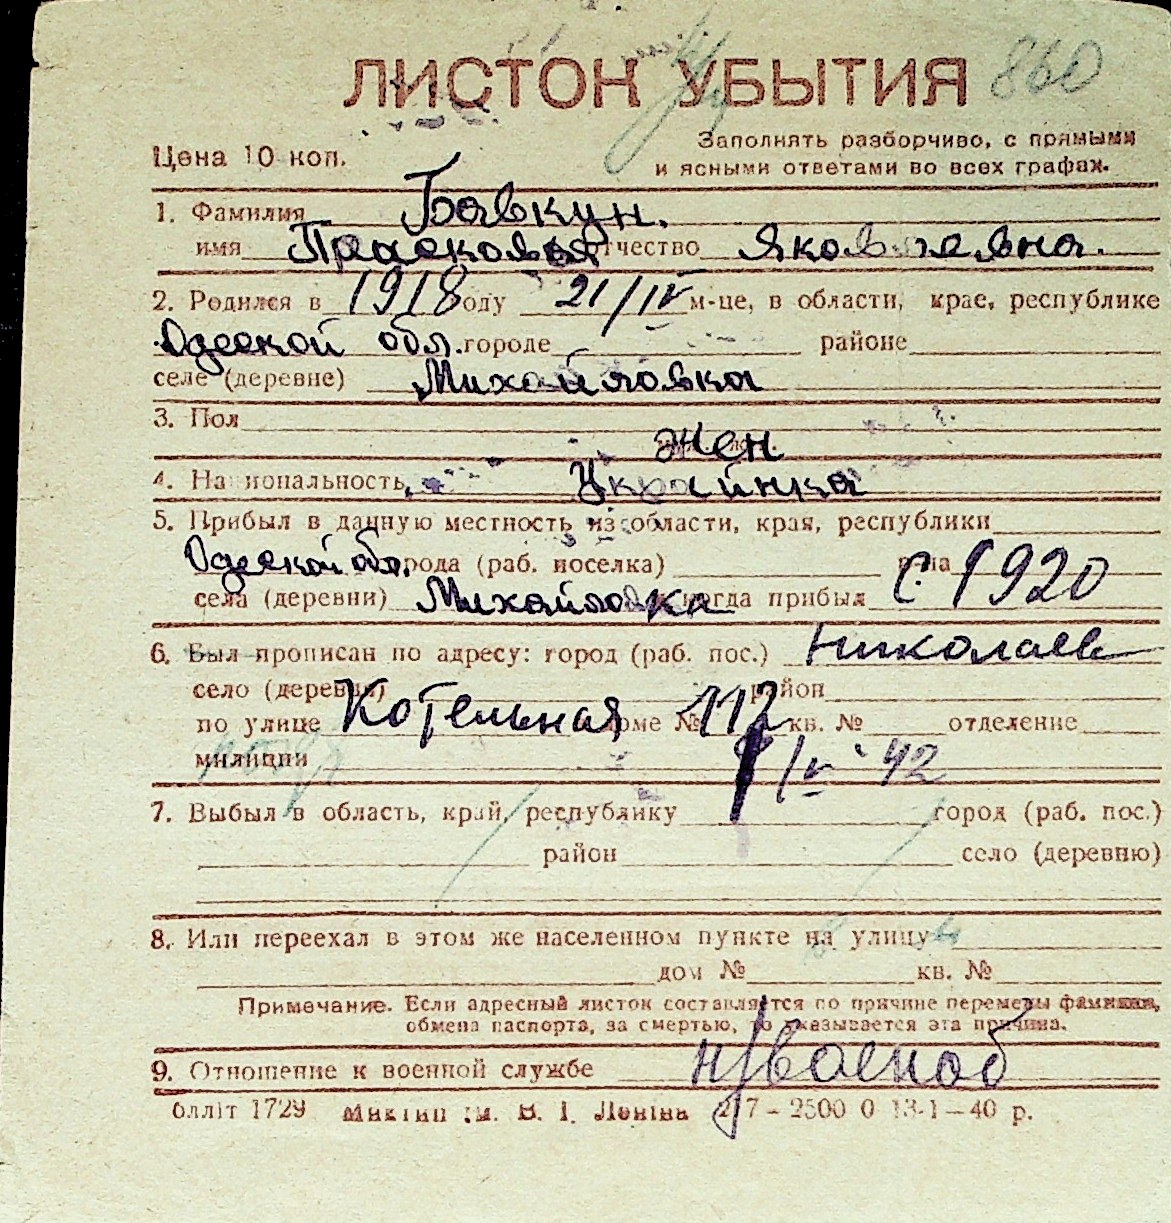 860
ЛИСТОК УБЫТИЯ
Цена 10 коп.
Заполнять разборчиво, с прямыми
и ясными ответами во всех графах.
1. Фамилия Бавкун.
имя Прасковья отчество Яковлевна.
2. Родился в 1918 году 21/IV м-це, в области, крае, республике
Одеской обл. городе районе
селе (деревне) Михайловка
3. Пол
жен
4. Национальность Украинка
5. Прибыл в данную местность из области, края, республики
Одеской обл. города (раб. поселка)
села (деревни) Михайловка когда прибыл с 1920
6. Был прописан по адресу: город (раб. пос.) Николаев
село (деревня) район
по улице Котельная доме № 112 кв. № отделение
милиции /V 42
7. Выбыл в область, край, республику город (раб. пос.)
район село (деревню)
8. Или переехал в этом же населенном пункте на улицу
дом № кв. №
Примечание. Если адресный листок составляется по причине перемены фамилии,
обмена паспорта, за смертью, то указывается эта причина.
9. Отношение к военной службе н/военоб
блліт 1729 им. В. І. Леніна 217 – 2500 0 13-1 – 40 р.